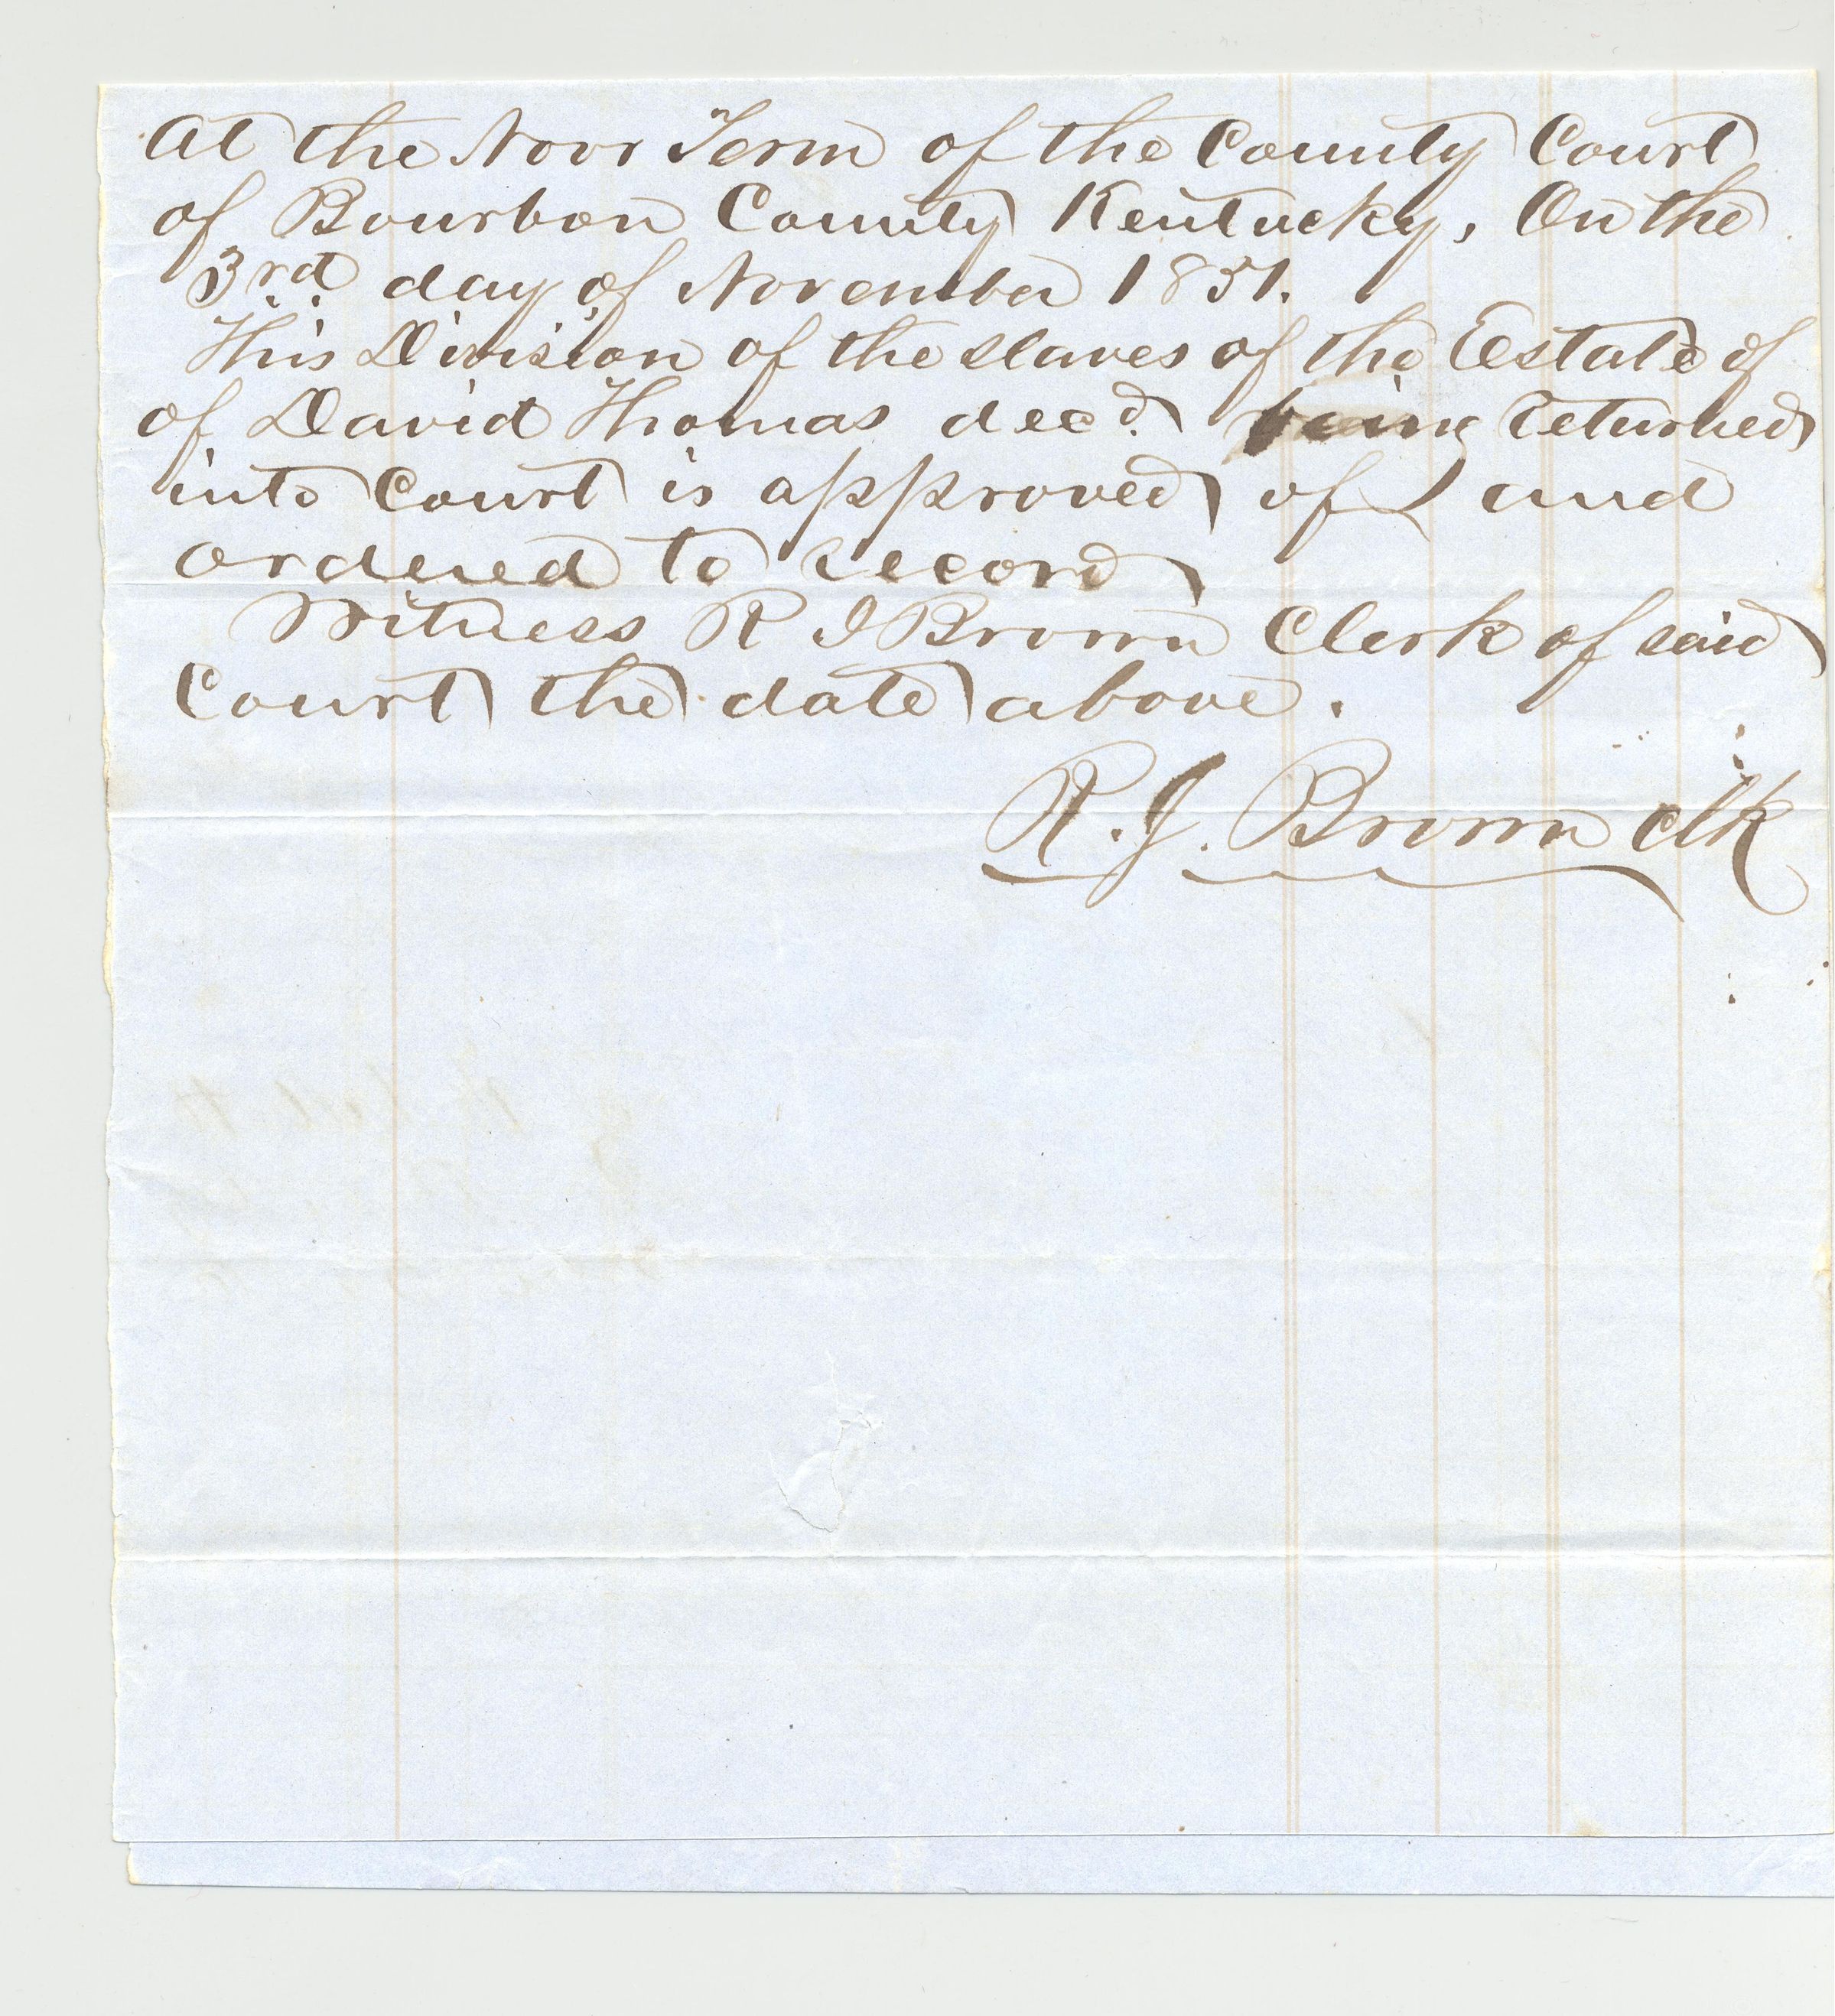 At the Novr Term of the County Court
of Bourbon County Kentucky, On the
3rd day of November 1851.
This Division of the slaves of the Estate of
of David Thomas decd. being returned
into Court is approved of & and
ordered to record
Witness R J Brown Clerk of said
Court the date above.
R. J. Brown clk